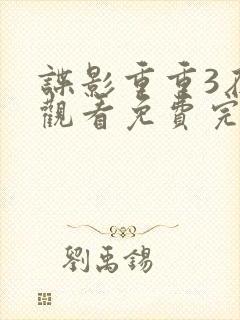 諜影重重3
觀看免費完
劉禹錫